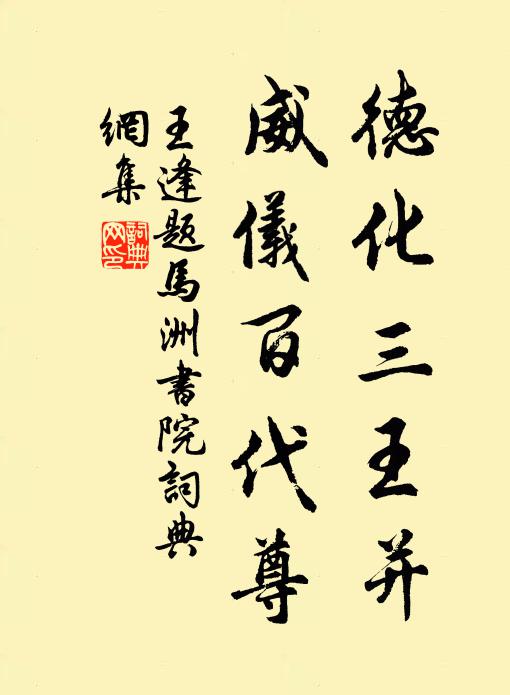 德化三王并
威儀百代尊
王逢题馬洲書院詞典
網集
詞典
网印